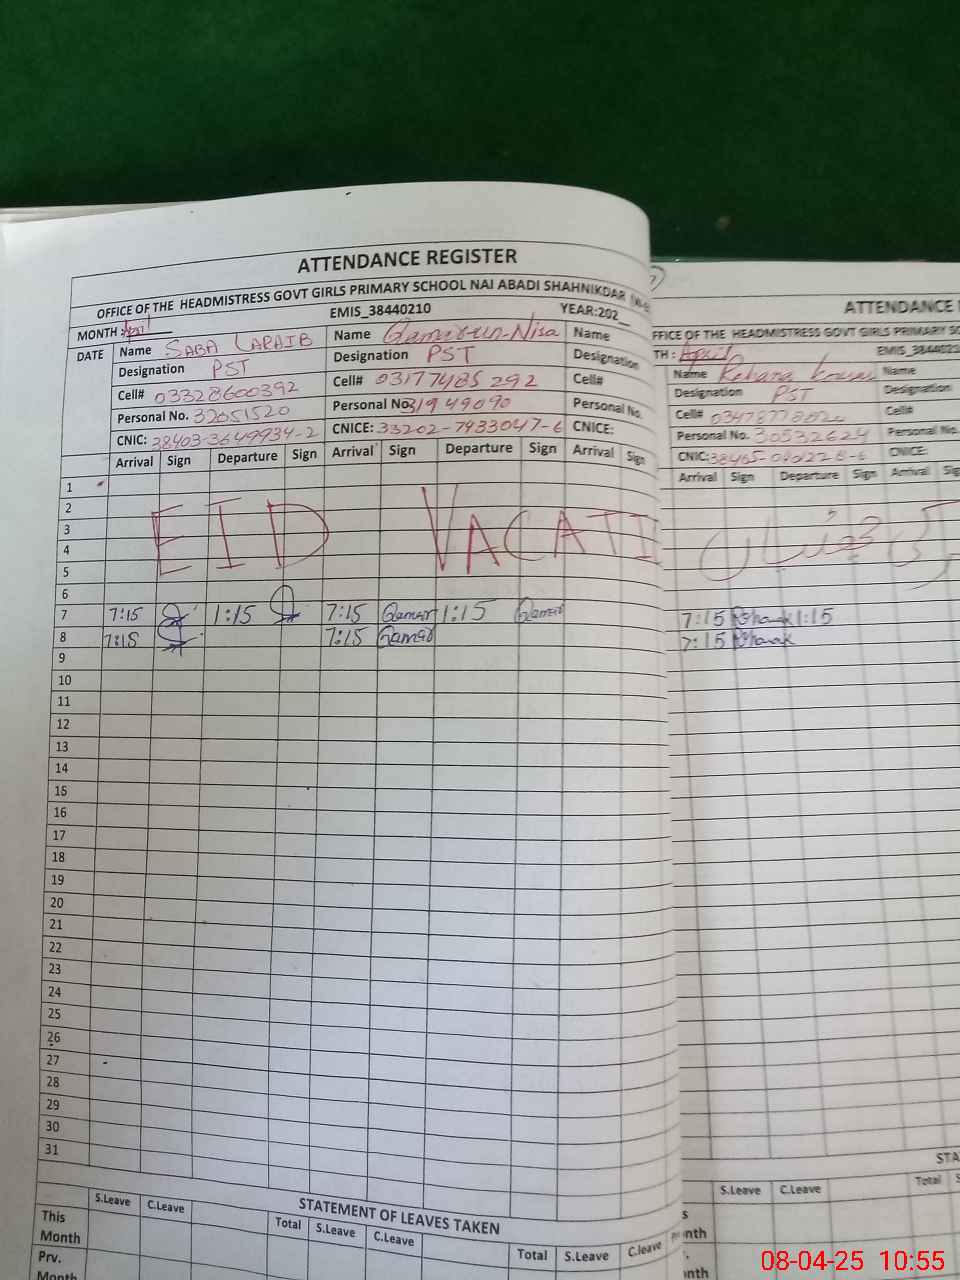 ATTENDANCE REGISTER
OFFICE OF THE HEADMISTRESS GOVT GIRLS PRIMARY SCHOOL NAI ABADI SHAHNIKDAR
EMIS_38440210 YEAR:202__
MONTH: April
DATE Name SABA LARAIB Name Qamar-un-Nisa Name
Designation PST Designation PST Designation
Cell# 03328600392 Cell# 03177485292 Cell#
Personal No. 32051520 Personal No. 31949090 Personal No.
CNIC: 38403-3649934-2 CNICE: 33202-7933047-6 CNICE:
Arrival Sign Departure Sign Arrival Sign Departure Sign Arrival Sign
1
2
3
4
5
EID VACATI
6
7 7:15 1:15 7:15 Qamar 1:15 Qamar
8 7:15 7:15 Qamar
9
10
11
12
13
14
15
16
17
18
19
20
21
22
23
24
25
26
27
28
29
30
31
STATEMENT OF LEAVES TAKEN
S.Leave C.Leave Total S.Leave C.Leave Total S.Leave C.leave
This
Month
Prv.
Month
ATTENDANCE
FFICE OF THE HEADMISTRESS GOVT GIRLS PRIMARY SC
TH: April EMIS_3844021
Name Rehana Kousar Name
Designation PST Designation
Cell# Cell#
Personal No. 30532624 Personal No.
CNIC: CNICE:
Arrival Sign Departure Sign Arrival Sig
7:15 1:15
7:15
STA
S.Leave C.Leave Total S
s
nth
nth
08-04-25 10:55